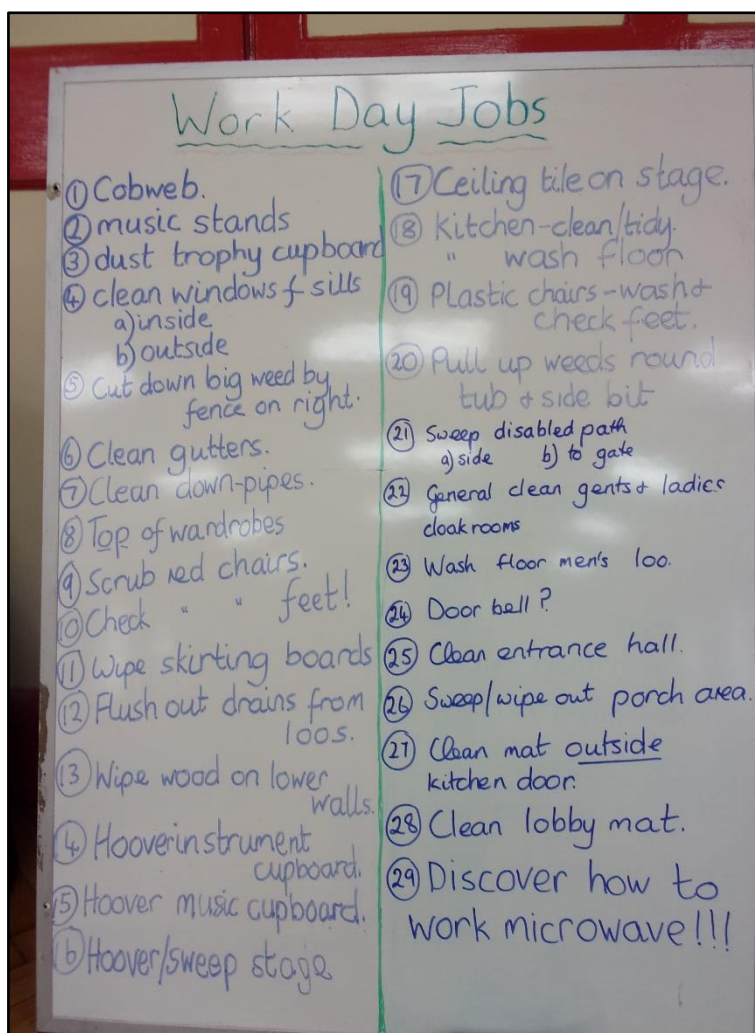 Work Day Jobs
① Cobweb.
② music stands
③ dust trophy cupboard
④ clean windows & sills
a) inside
b) outside
⑤ Cut down big weed by
fence on right.
⑥ Clean gutters.
⑦ Clean down-pipes.
⑧ Top of wardrobes
⑨ Scrub red chairs.
⑩ Check " " feet!
⑪ Wipe skirting boards
⑫ Flush out drains from
loos.
⑬ Wipe wood on lower
walls.
⑭ Hoover instrument
cupboard.
⑮ Hoover music cupboard.
⑯ Hoover/sweep stage
⑰ Ceiling tile on stage.
⑱ Kitchen-clean/tidy.
" wash floor
⑲ Plastic chairs-wash &
check feet.
⑳ Pull up weeds round
tub & side bit
㉑ Sweep disabled path
a) side b) to gate
㉒ General clean gents & ladies
cloakrooms
㉓ Wash floor men's loo.
㉔ Door bell?
㉕ Clean entrance hall.
㉖ Sweep/wipe out porch area.
㉗ Clean mat outside
kitchen door.
㉘ Clean lobby mat.
㉙ Discover how to
work microwave!!!